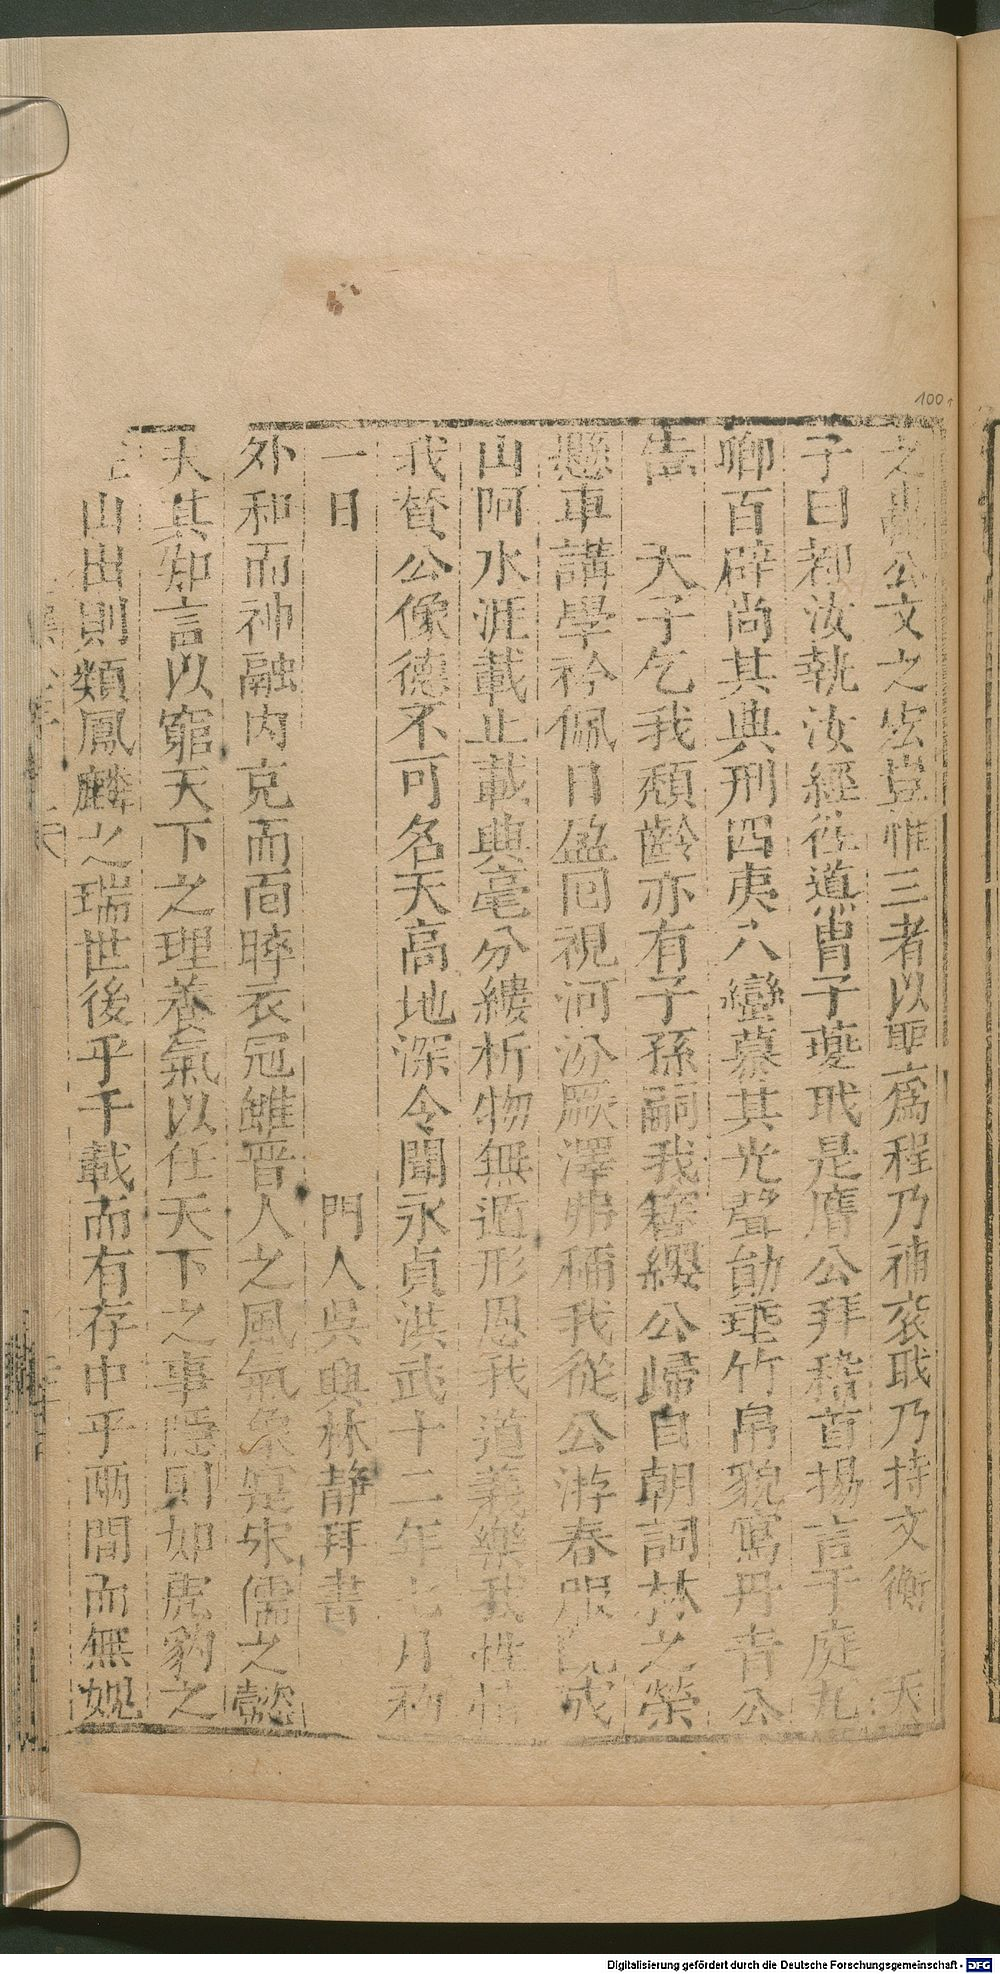 100
之禹公文之宏豈惟三者以耶為程乃補袞職乃持文衡　天
子曰都汝執汝經徃遵冑子夔職是膺公拜稽首揚言于庭九
卿百辟尚其典刑四夷八蠻慕其光聲勛垂竹帛貌寫丹青公
告　天子乞我頹齡亦有子孫嗣我簪纓公歸自朝詞林之榮
懸車講學衿佩日盈回視河汾厥澤弗稱我從公游春服既成
山阿水涯載止載興毫分縷析物無遁形恩我道義樂我性情
我贊公像德不可名天高地深令聞永貞洪武十二年七月初
一日　門人吳興林靜拜書
外和而神融内充而面睟衣冠雖晋人之風氣象寔宋儒之懿
夫其知言以窮天下之理養氣以任天下之事隱則如虎豹之
山出則類鳳麟之瑞世後乎千載而有存中乎兩間而無媿
Digitalisierung gefördert durch die Deutsche Forschungsgemeinschaft - DFG